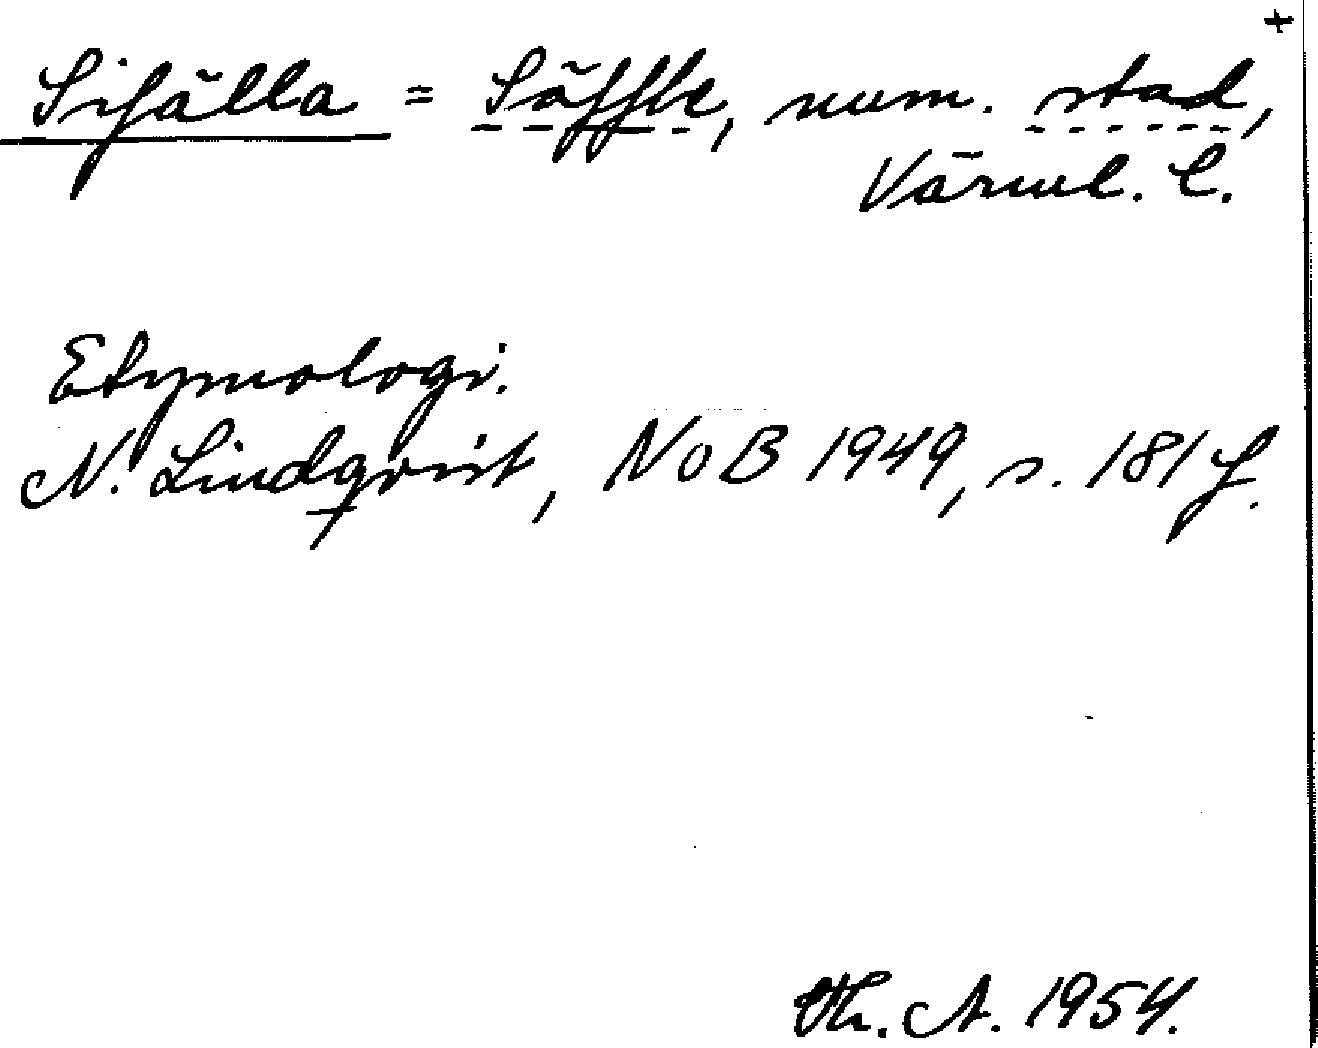 +
Sifälla = Säffle, num. stad,
Värml. l.
Etymologi.
N. Lindqvist, NoB 1949, s. 181 f.
Th. A. 1954.